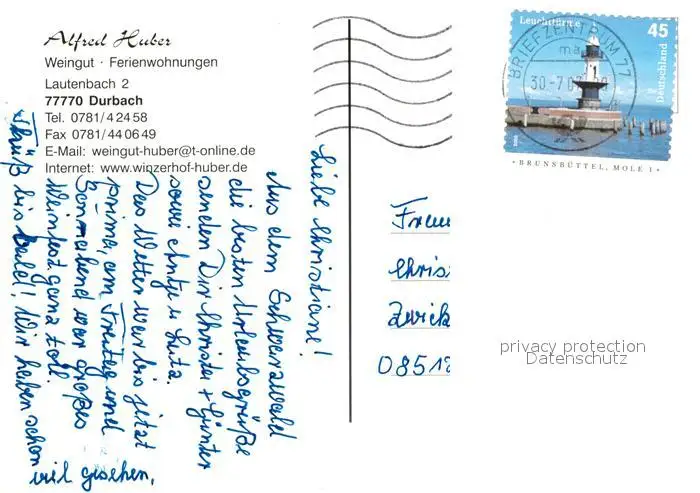 Alfred Huber
Weingut · Ferienwohnungen
Lautenbach 2
77770 Durbach
Tel. 0781/4 24 58
Fax 0781/44 06 49
E-Mail: weingut-huber@t-online.de
Internet: www.winzerhof-huber.de
Liebe Christiane!
Aus dem Schwarzwald
die besten Urlaubsgrüße
senden Dir Christa + Günter
sowie Lutz.
Das Wetter war bis jetzt
prima, am Freitag und
Sonnabend war großes
Weinfest ganz toll.
Tschüß bis bald! Wir haben schon
viel gesehen.
Leuchttürme
45
Deutschland
BRIEFZENTRUM 77
30.-7.0
BRUNSBÜTTEL, MOLE 1
Frau
Chris
Zwick
0851
privacy protection
Datenschutz